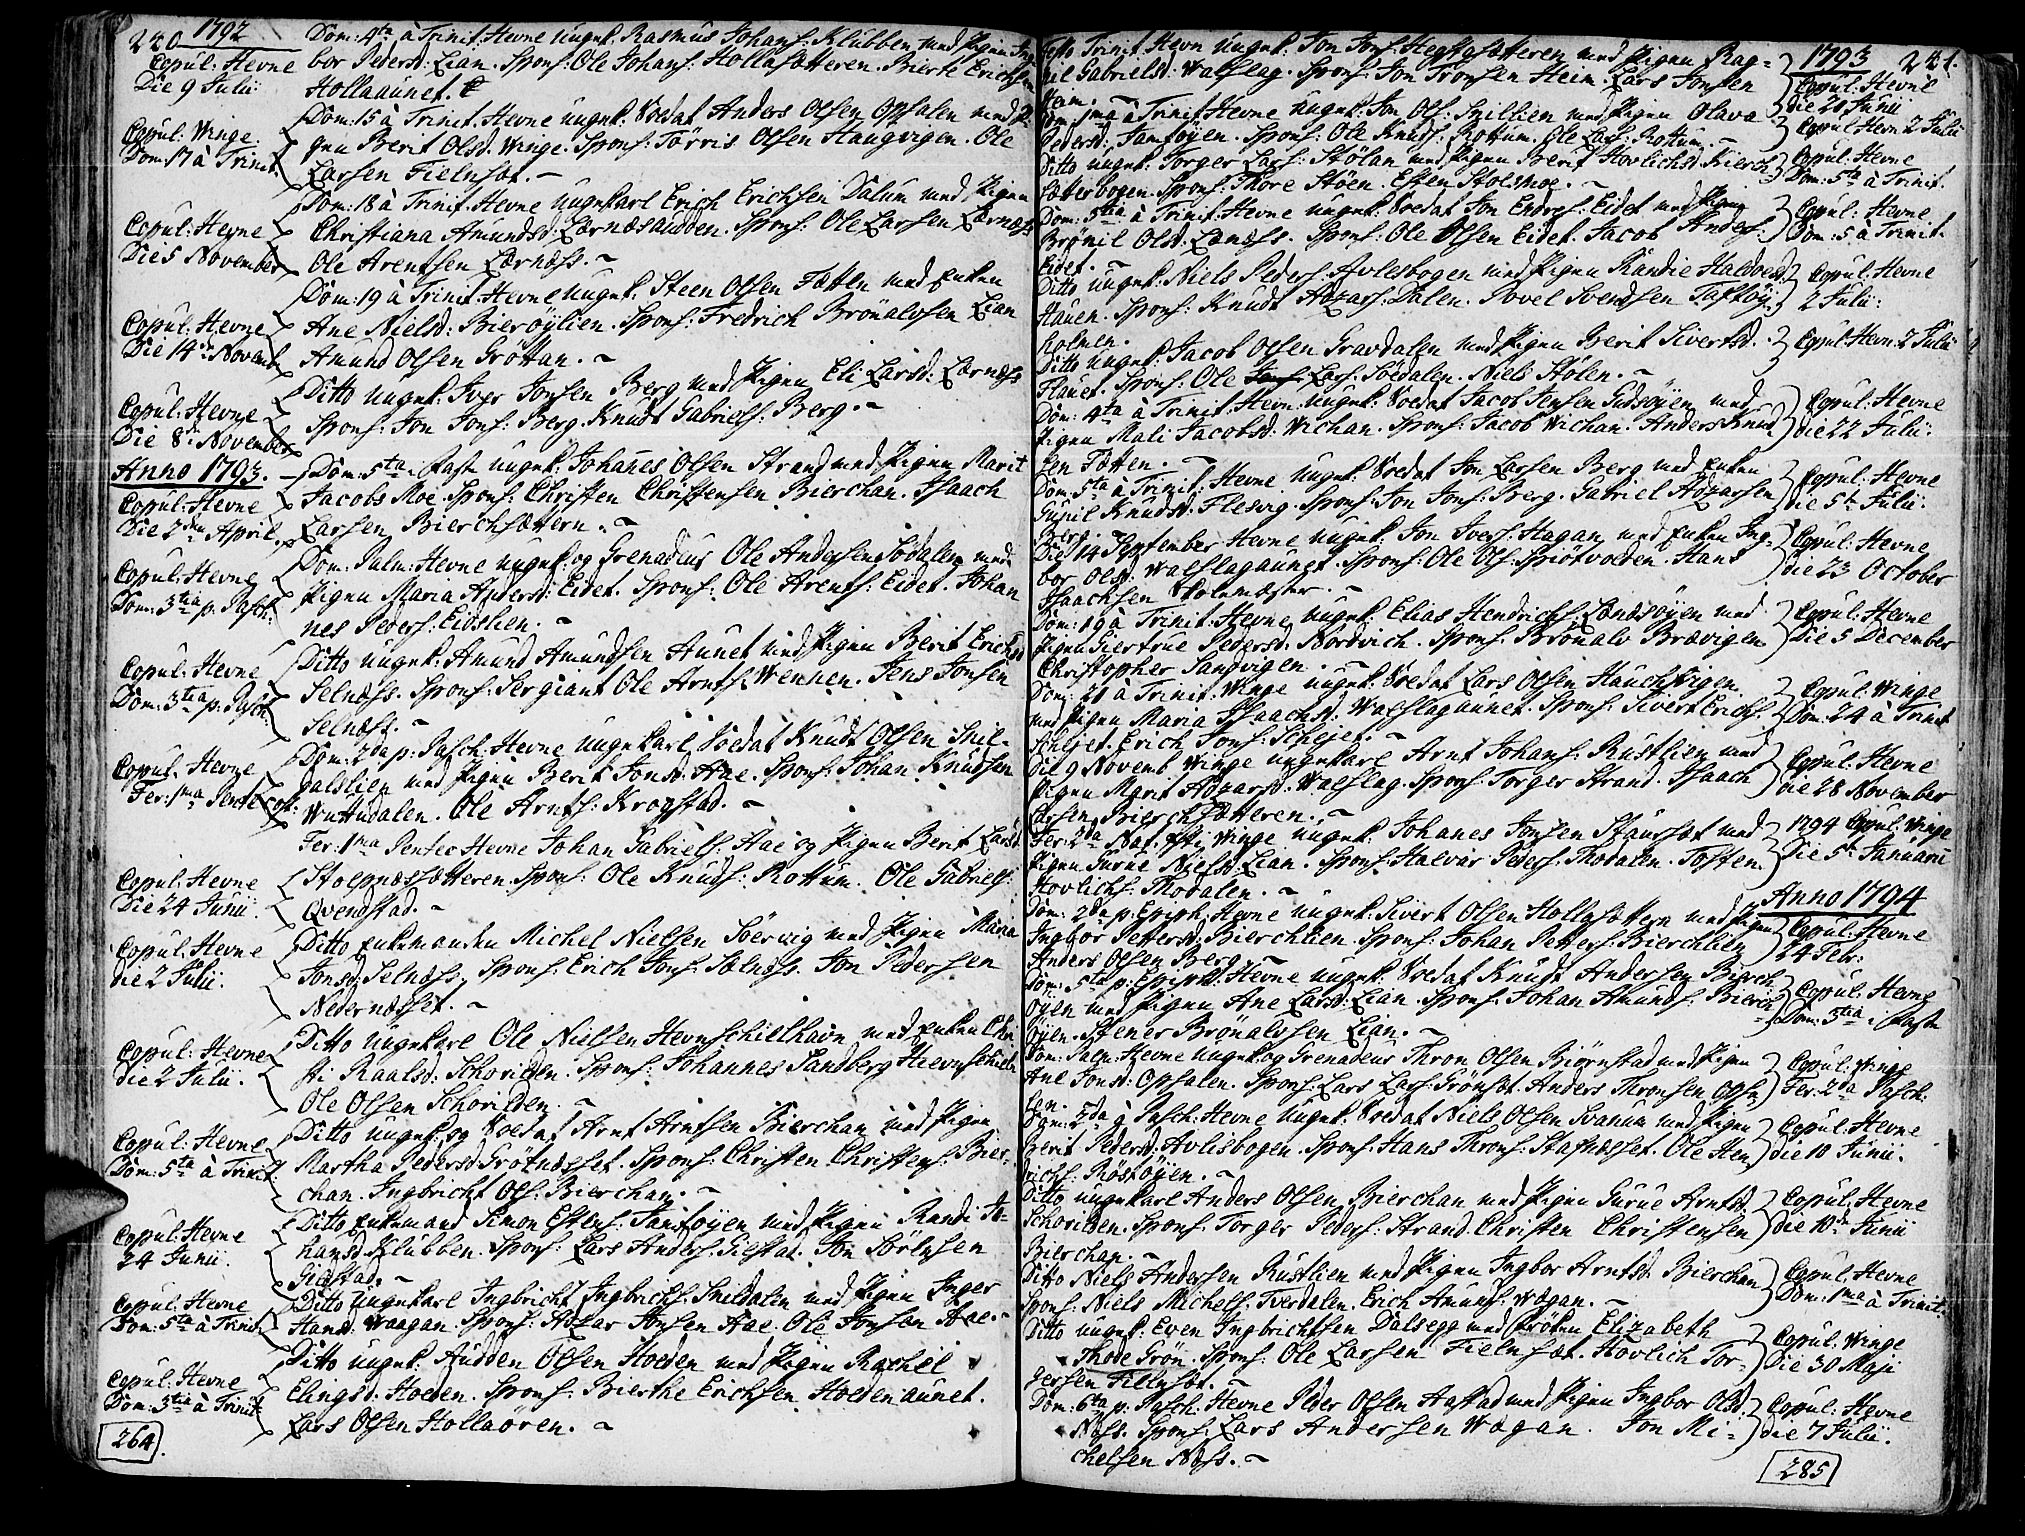 220 1792
Copul: Hevne
Die 9 Julii
Dom: 4ta à Trinit: Hevne ungk: Rasmus Johans: Klubben med Pigen Ing
bor Pedersd: Lian. Spons: Ole Johans: Hollasætteren. Bierte Erichsen
Hollaaunet.
Copul: Winge
Dom: 17 à Trinit
Dom: 15 à Trinit: Hevne ungk: Soldat Anders Olsen Opsalen med Pi
gen Berit Olsd: Winge. Spons: Tørris Olsen Haugvigen. Ole
Larsen Fielnset.
Copul: Hevne
Die 5 November
Dom: 18 à Trinit: Hevne ungekarl Erich Erichsen Dalum med Pigen
Christiana Amundsd: Lærnæsaudden. Spons: Ole Larsen Lærnæss
Ole Arentsen Lærnæss.
Copul: Hevne
Die 14de Novemb
Dom: 19 à Trinit: Hevne ungk: Steen Olsen Fætten med Enken
Ane Nielsd: Bierøylien. Spons: Fredrich Brönalvsen Lian
Amund Olsen Gröttan.
Copul: Hevne
Die 8de November
Ditto ungk: Iver Jonsen Berg med Pigen Eli Larsd: Lærnæss
Spons: Jon Jons: Berg. Knudt Gabriels: Berg.
Anno 1793.
Copul: Hevne
Die 2den April.
Dom: 5ta i Faste ungk: Johanes Olsen Strand med Pigen Marit
Jacobs Moe. Spons: Christen Christensen Bierchan. Isaach
Larsen Bierchsættern.
Copul: Hevne
Dom: 3tia p: Pasch:
Dom: Palm: Hevne ungk: og Grenadeur Ole Andersen Södalen med
Pigen Maria Andersd: Eidet. Spons: Ole Arents: Eidet. Johan
nes Peders: Eidslien.
Copul: Hevne
Dom: 3tia p: Pasch
Ditto ungk: Amund Amundsen Aunet med Pigen Berit Erichsd
Selnæss. Spons: Sergiant Ole Arnts: Wennen. Jens Jonsen
Selnæss.
Copul: Hevne
Fer: 1ma Pentecost:
Dom: 2da p: Pasch: Hevne ungekarl Soldat Knudt Olsen Snil-
dalslien med Pigen Berit Jonsd: Aae. Spons: Johan Knudsen
Wuttudalen. Ole Arnts: Krogstad.
Copul: Hevne
Die 24 Junii.
Fer: 1ma Pentec Hevne Johan Gabriels: Aae og Pigen Berit Larsd:
Stolpnæssætteren. Spons: Ole Knuds: Rottum. Ole Gabriels:
Qvenstad.
Copul: Hevne
die 2 Julii.
Ditto Enkemanden Michel Nielsen Söervig med Pigen Maria
Jonsd: Selnæss. Spons: Erich Jons: Selnæss. Jon Pedersen
Nedernæsset.
Copul: Hevne
die 2 Julii.
Ditto ungekarl Ole Nielsen Hevnschielhavn med Enken Chri
sti Raalsd: Schorilden. Spons: Johannes Sandberg Hevnschieln
Ole Olsen Schorilden.
Copul: Hevne
Dom: 5ta à Trinit
Ditto ungk: og Soldat Arnt Arntsen Bierchan med Pigen
Martha Pedersd: Grötnæsset. Spons: Christen Christens: Bier-
chan. Ingbricht Ols: Bierchan.
Copul: Hevne
24 Junii.
Ditto Enkemand Simon Estens: Tamsøyen med Pigen Randi Jo-
hansd: Klubben. Spons: Lars Anders: Giestad. Jon Sörensen
Giestad.
Copul: Hevne
Dom: 5ta à Trinit
Ditto ungekarl Ingbricht Ingbrichs: Snildalen med Pigen Inger
Hansd: Waagan. Spons: Adzar Jonsen Aae. Ole Jonsen Aae.
Copul: Hevne
Dom: 3tia à Trinit
Ditto ungk: Audden Olsen Holden med Pigen Rachel
Elingsd: Holden. Spons: Bierthe Erichsen Holdenaunet.
Lars Olsen Hollaören.
264.
1793 221.
Ditto Trinit: Hevn ungk: Jon Jons: Heggsætteren med Pigen Rag-
nil Gabrielsd: Walslag. Spons: Jon Tronsen Heim. Lars Jonsen
Heim.
Copul: Hevne
die 21 Junii
Dom: 1ma à Trinit: Hevne ungk: Jon Ols: Snillien med Pigen Olava
Pedersd: Tamsøyen. Spons: Ole Knuds: Rottum. Ole Lars: Rottum.
Copul: Hevn: 2 Julii
Ditto ungk: Torger Lars: Stölan med Pigen Berit Hovlichsd: Bierch-
sætterbogen. Spons: Thore Stöen. Esten Stolsmoe.
Copul: Hevne
Dom: 5ta à Trinit.
Dom: 3tia à Trinit: Hevne ungk: Soldat Jon Endres: Eidet med Pigen
Brönil Olsd: Lenæss. Spons: Ole Olsen Eidet. Jacob Anders:
Eidet.
Copul: Hevne
Dom: 5 à Trinit.
Ditto ungk: Niels Peders: Avlesbogen med Pigen Randie Haldorsd
Hauen. Spons: Knudt Adzars: Dalen. Povel Svendsen Taftöy-
holmen.
Copul: Hevne
2 Julii.
Ditto ungk: Jacob Olsen Gravdalen med Pigen Berit Siversd.
Flauet. Spons: Ole Lars: Söedalen. Niels Stölen.
Copul: Hevn: 2 Julii
Dom: 4ta à Trinit: Hevn: ungk: Soldat Jacob Jensen Gudsøyen med
Pigen Mali Jacobsd: Wichan. Spons: Jacob Wichan. Anders Knud
sen Fætten.
Copul: Hevne
die 22 Julii.
Dom: 5ta à Trinit: Hevne ungk: Soldat Jon Larsen Berg med Enken
Gunil Knudsd: Flesvig. Spons: Jon Jons: Berg. Gabriel Adzarsen
Berg.
Copul: Hevne
die 5te Julii.
Die 14 September Hevne ungk: Jon Ivers: Hagan med Enken Ing-
bor Olsd: Walslagaunet. Spons: Ole Ols: Spiötvolden. Hans
Isaachsen Skolemester.
Copul: Hevne
die 23 October
Dom: 19 à Trinit: Hevne ungk: Elias Hendrichs: Lendsøyen med
Pigen Giertrue Pedersd: Nordvich. Spons: Brönalv Brævigen
Christopher Sandvigen.
Copul: Hevne
Die 5 December
Dom: 21 à Trinit: Winge ungk: Soldat Lars Olsen Hauchvigen
med Pigen Maria Isaachsd: Walslagaunet. Spons: Sivert Erichs:
Schejet. Erich Jons: Schejet.
Copul: Winge
Dom: 24 à Trinit
Die 9 Novemb: Winge ungekarl Arnt Johans: Rustlien med
Pigen Marit Adzarsd: Walslag. Spons: Torger Strand. Isaach
Larsen Bierchsætteren.
Copul: Hevne
die 28 November
Fer: 2da Nat: Xsti: Winge ungk: Johanes Jonsen Staursæt med
Pigen Gurue Nielsd: Lian. Spons: Halvar Peders: Thodalen. Tosten
Hovlichs: Thodalen.
1794 Copul: Winge
Die 5te Januarii
Anno 1794
Dom: 2da p: Epiph: Hevne ungk: Sivert Olsen Hollasettern med Pigen
Ingbor Pettersd: Bierchlien. Spons: Johan Petters: Bierchlien
Anders Olsen Berg.
Copul: Hevne
24 Febr:
Dom: 5ta p: Epiph: Hevne ungk: Soldat Knudt Andersen Bierch
øyen med Pigen Ane Larsd: Lian. Spons: Johan Amunds: Bierch
øyen. Stener Brönalvsen Lian.
Copul: Hevne
Dom: 3tia i Faste
Dom: Palm: Hevne ungk: og Grenadeur Thron Olsen Biörnstad med Pigen
Ane Jonsd: Opsalen. Spons: Lars Lars: Grönset. Anders Thronsen Opsa
len.
Copul: Winge
Fer: 2da Pasch:
Dom: 2da p: Pasch: Hevne ungk: Soldat Niels Olsen Svanum med Pigen
Berit Pedersd: Avlesbogen. Spons: Hans Throns: Stapnæsset. Ole Hen
drichs: Röstøyen.
Copul: Hevne
die 10 Junii.
Ditto ungekarl Anders Olsen Bierchan med Pigen Gurue Arntsd:
Schorilden. Spons: Torger Peders: Strand. Christen Christensen
Bierchan.
Copul: Hevne
Die 10de Junii
Ditto Niels Andersen Rustlien med Pigen Ingbor Arntsd: Bierchan
Spons: Niels Michels: Tverdalen. Erich Amunds: Wagan.
Copul: Hevne
Dom: 1ma à Trinit:
Ditto ungk: Even Ingbrichtsen Dalsegg med Fröken Elizabeth
Thode Grön. Spons: Ole Larsen Fielnset. Hovlich Tor-
gersen Fillnset.
Copul: Winge
Die 30 Maji
Dom: 6ta p: Pasch: Hevne Peder Olsen Aastad med Pigen Ingbor Olsd:
Næss. Spons: Lars Andersen Wagan. Jon Mi-
chelsen Næss.
Copul: Hevne
die 7 Julii.
285